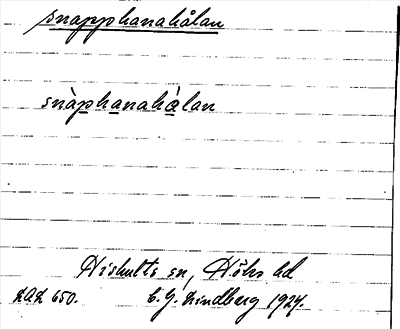 snapphanahålan
snàphanahålan
Hishults sn, Höks hd
LAL 650. C. G. Lindberg 1927.